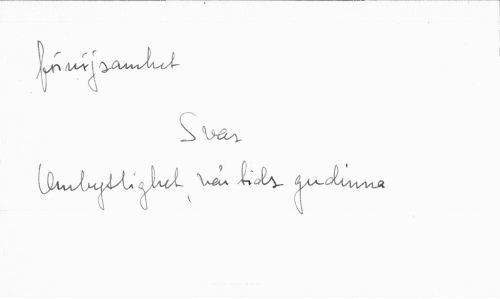 förnöjsamhet
Svar
Ombytlighet, vår tids gudinna